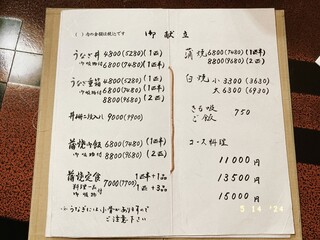 御献立
( )内の金額は税込です
うなぎ丼 4800(5280)(1匹)
御吸物付 6800(7480)(1匹半)
うなぎ重箱 6800(7480)(1匹半)
御吸物付 8800(9680)(2匹)
丼 9000(9900)
蒲焼御飯 6800(7480)(1匹半)
御吸物付 8800(9680)(2匹)
蒲焼定食 7000(7700) 1匹+1品
料理一品 1匹+3品
御吸物付
うなぎには小骨がありますので
ご注意下さい
蒲焼 6800(7480)(1匹半)
8800(9680)(2匹)
白焼 小 3300(3630)
大 6300(6930)
きも吸
ご飯 750
コース料理
11000円
13500円
15000円
5 14 '24